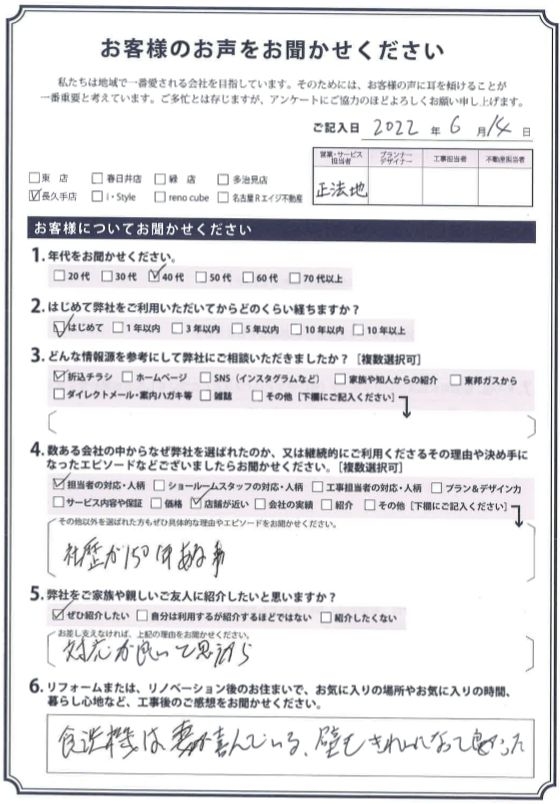 お客様のお声をお聞かせください
私たちは地域で一番愛される会社を目指しています。そのためには、お客様の声に耳を傾けることが
一番重要と考えています。ご多忙とは存じますが、アンケートにご協力のほどよろしくお願い申し上げます。
ご記入日 2022 年 6 月 14 日
営業・サービス担当者 プランナー・デザイナー 工事担当者 不動産担当者
正法地
□東 店 □春日井店 □緑 店 □多治見店
☑長久手店 □i・Style □reno cube □名古屋Rエイジ不動産
お客様についてお聞かせください
1. 年代をお聞かせください。
□20代 □30代 ☑40代 □50代 □60代 □70代以上
2. はじめて弊社をご利用いただいてからどのくらい経ちますか?
☑はじめて □1年以内 □3年以内 □5年以内 □10年以内 □10年以上
3. どんな情報源を参考にして弊社にご相談いただきましたか?[複数選択可]
☑折込チラシ □ホームページ □SNS(インスタグラムなど) □家族や知人からの紹介 □東邦ガスから
□ダイレクトメール・案内ハガキ等 □雑誌 □その他[下欄にご記入ください]
4. 数ある会社の中からなぜ弊社を選ばれたのか、又は継続的にご利用くださるその理由や決め手に
なったエピソードなどございましたらお聞かせください。[複数選択可]
☑担当者の対応・人柄 □ショールームスタッフの対応・人柄 □工事担当者の対応・人柄 □プラン&デザイン力
□サービス内容や保証 □価格 ☑店舗が近い □会社の実績 □紹介 □その他[下欄にご記入ください]
その他以外を選ばれた方もぜひ具体的な理由やエピソードをお聞かせください。
社歴が150年ある事
5. 弊社をご家族や親しいご友人に紹介したいと思いますか?
☑ぜひ紹介したい □自分は利用するが紹介するほどではない □紹介したくない
お差し支えなければ、上記の理由をお聞かせください。
対応が良いと思うから
6. リフォームまたは、リノベーション後のお住まいで、お気に入りの場所やお気に入りの時間、
暮らし心地など、工事後のご感想をお聞かせください。
食洗機は、妻が喜んでいる、壁もきれいになって良かった